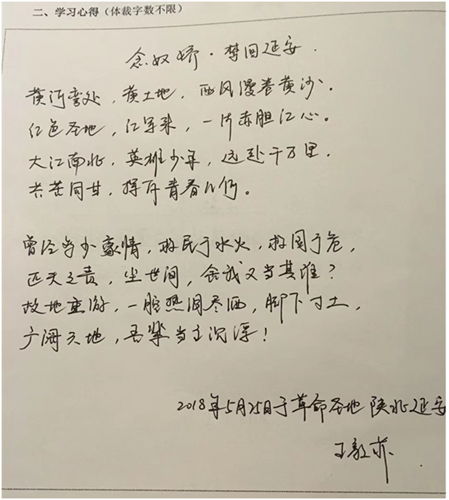 二、学习心得（体裁字数不限）
念奴娇·梦回延安
黄河弯处，黄土地，西风漫卷黄沙。
红色圣地，红军来，一片赤胆红心。
大江南北，英雄少年，远赴千万里。
共苦同甘，挥斥青春几何。
曾经多少豪情，救民于水火，救国于危，
匹夫之责，坐世间，舍我又当其谁？
故地重游，一腔热泪尽洒，脚下寸土，
广阔天地，吾辈当主沉浮！
2018年5月25日于革命圣地陕北延安
王